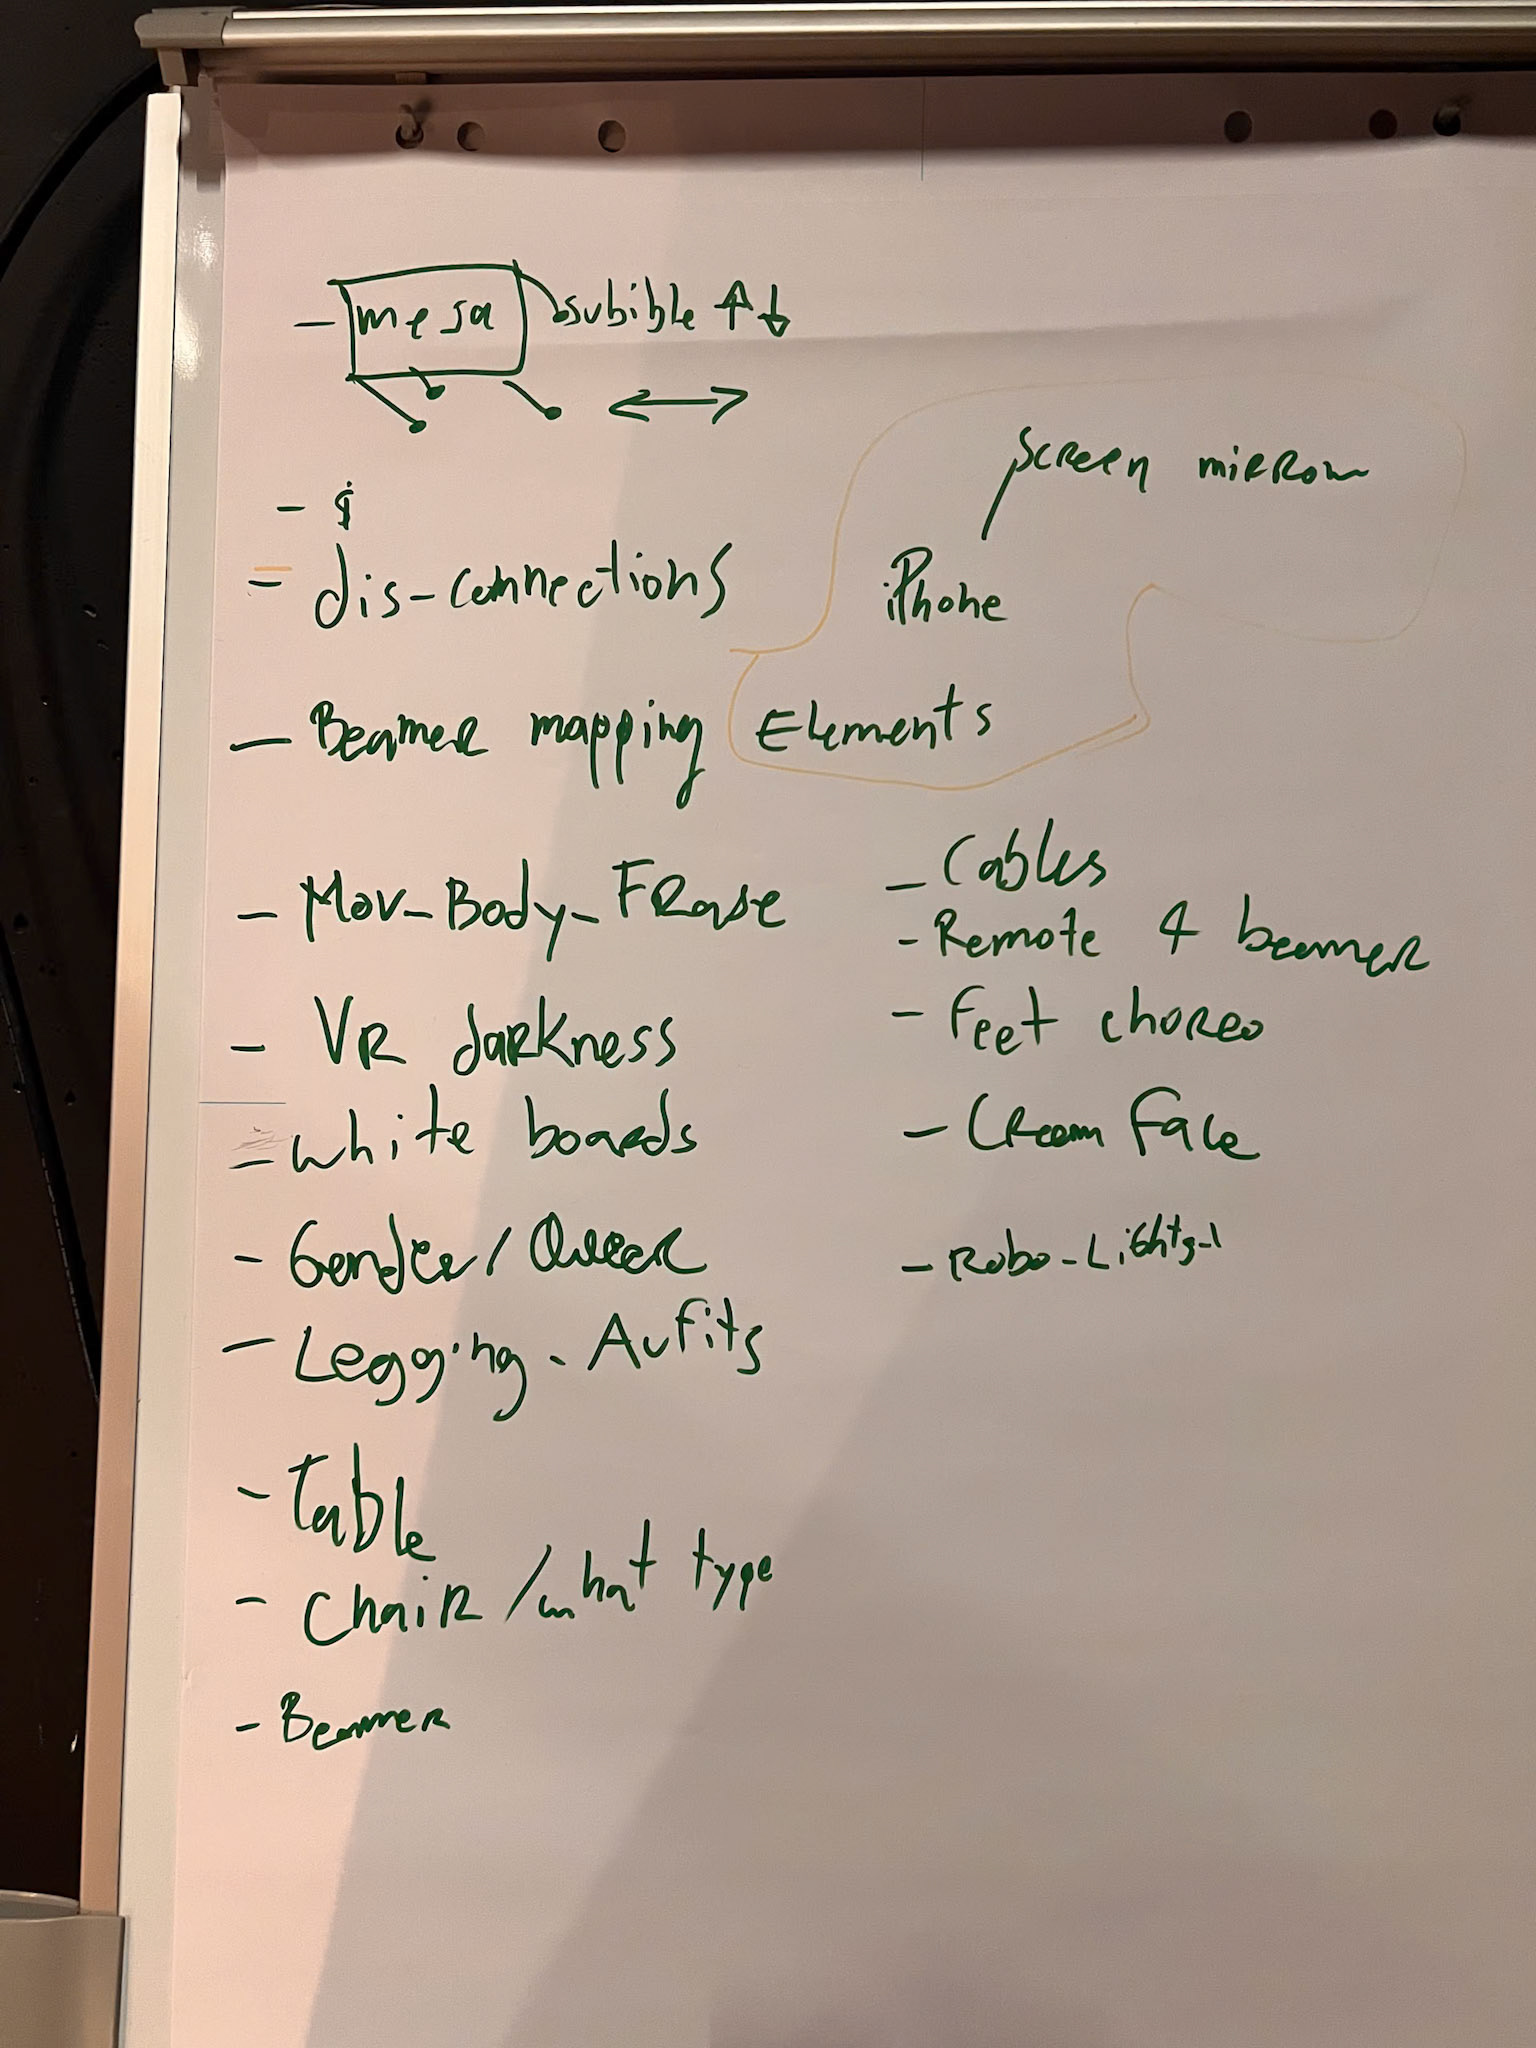 - mesa subible ↑↓
↔
- $
- dis-connections
Screen mirror
iPhone
- Beamer mapping Elements
- Mov-Body-FRase
- VR darkness
- white boards
- Gender/Queer
- Legging - Aufits
- Table
- Chair / what type
- Beamer
- Cables
- Remote 4 beamer
- Feet choreo
- Cream Face
- Robo-Lights-1